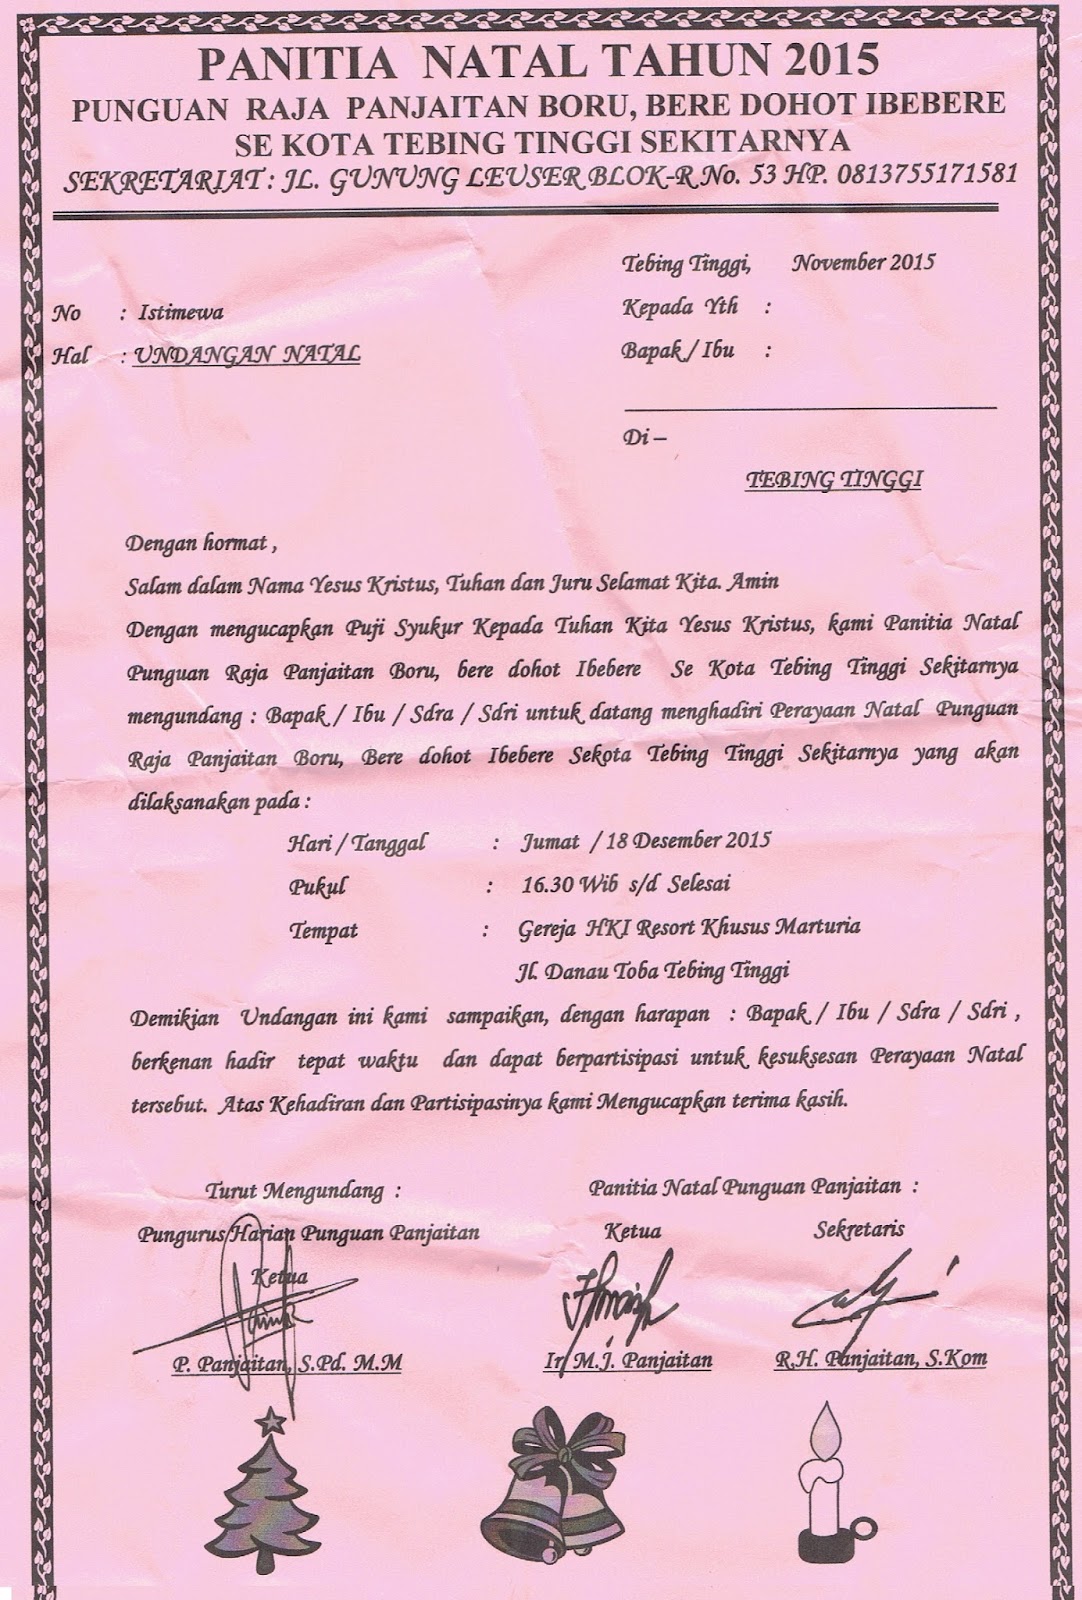 PANITIA NATAL TAHUN 2015
PUNGUAN RAJA PANJAITAN BORU, BERE DOHOT IBEBERE
SE KOTA TEBING TINGGI SEKITARNYA
SEKRETARIAT : JL. GUNUNG LEUSER BLOK-R No. 53 HP. 0813755171581
Tebing Tinggi, November 2015
No : Istimewa
Kepada Yth :
Hal : UNDANGAN NATAL
Bapak / Ibu :
Di –
TEBING TINGGI
Dengan hormat ,
Salam dalam Nama Yesus Kristus, Tuhan dan Juru Selamat Kita. Amin
Dengan mengucapkan Puji Syukur Kepada Tuhan Kita Yesus Kristus, kami Panitia Natal
Punguan Raja Panjaitan Boru, bere dohot Ibebere Se Kota Tebing Tinggi Sekitarnya
mengundang : Bapak / Ibu / Sdra / Sdri untuk datang menghadiri Perayaan Natal Punguan
Raja Panjaitan Boru, Bere dohot Ibebere Sekota Tebing Tinggi Sekitarnya yang akan
dilaksanakan pada :
Hari / Tanggal : Jumat / 18 Desember 2015
Pukul : 16.30 Wib s/d Selesai
Tempat : Gereja HKI Resort Khusus Marturia
Jl. Danau Toba Tebing Tinggi
Demikian Undangan ini kami sampaikan, dengan harapan : Bapak / Ibu / Sdra / Sdri ,
berkenan hadir tepat waktu dan dapat berpartisipasi untuk kesuksesan Perayaan Natal
tersebut. Atas Kehadiran dan Partisipasinya kami Mengucapkan terima kasih.
Turut Mengundang :
Pungurus Harian Punguan Panjaitan
Ketua
P. Panjaitan, S.Pd. M.M
Panitia Natal Punguan Panjaitan :
Ketua Sekretaris
Ir. M.J. Panjaitan R.H. Panjaitan, S.Kom